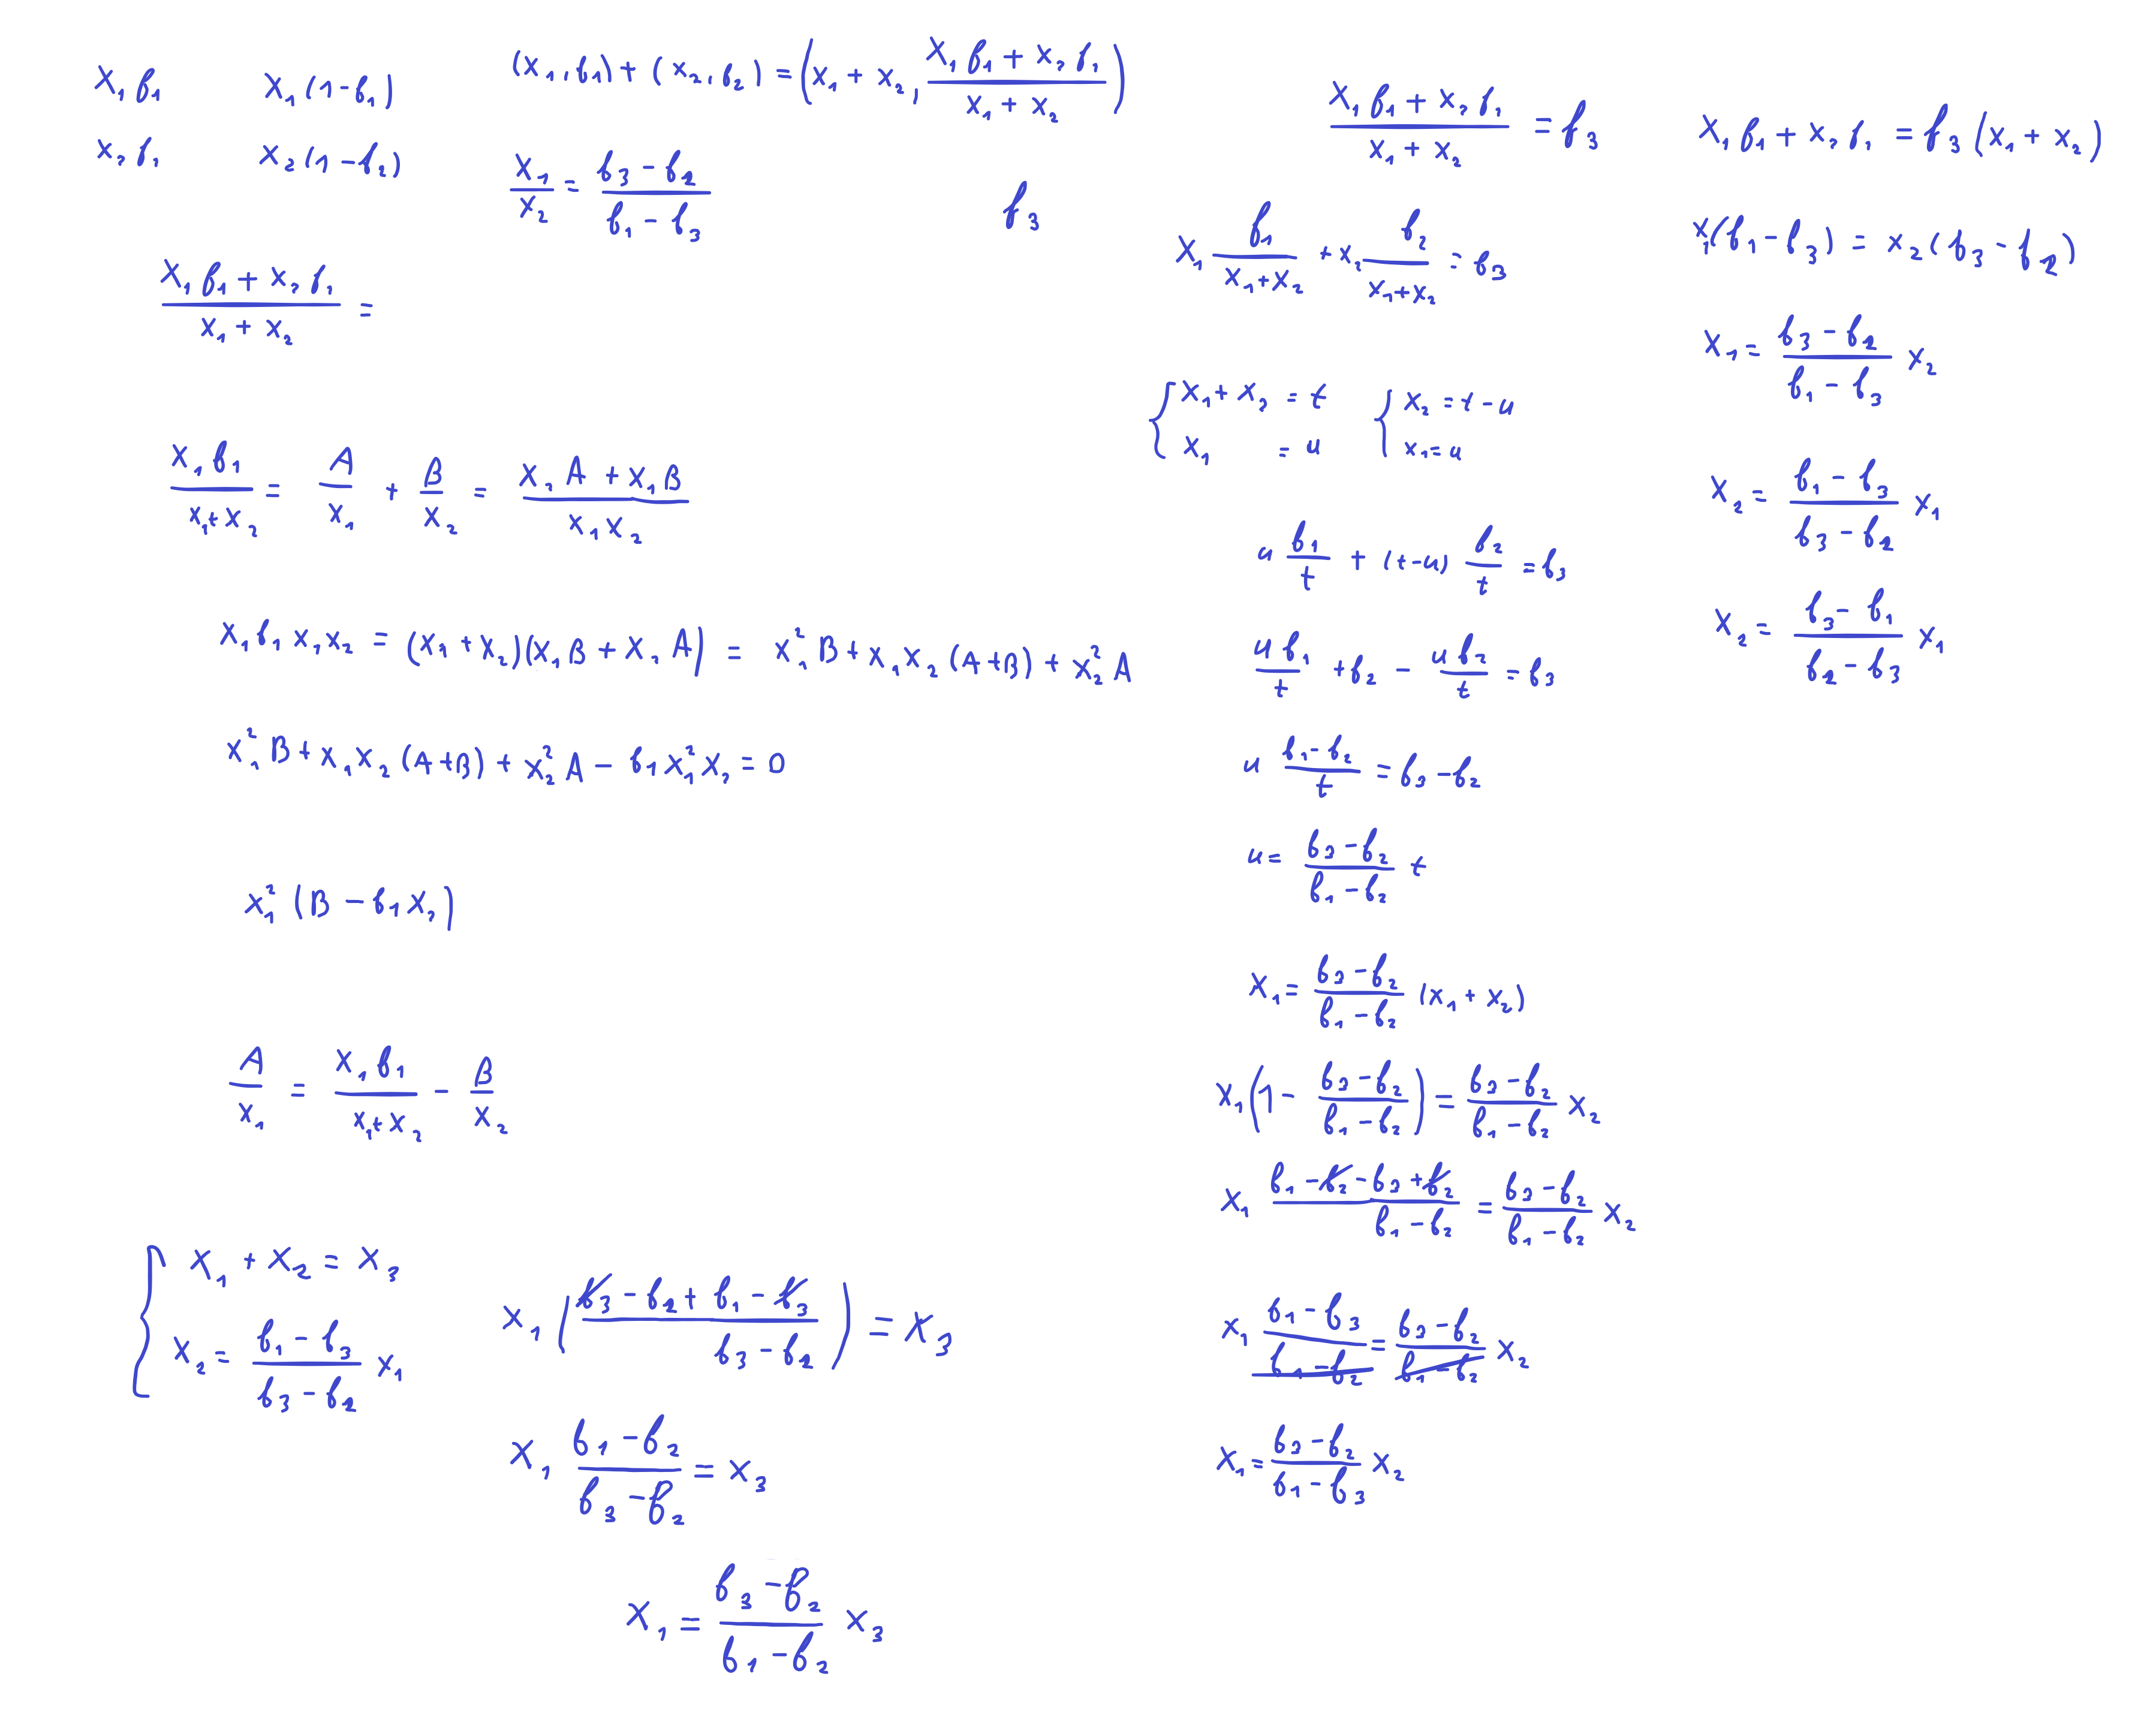 x₁ b₁
x₂ b₂
x₁ (1 - b₁)
x₂ (1 - b₂)
(x₁, b₁) + (x₂, b₂) = (x₁ + x₂, (x₁ b₁ + x₂ b₂)/(x₁ + x₂))
x₁/x₂ = (b₃ - b₂)/(b₁ - b₃)
b₃
(x₁ b₁ + x₂ b₂)/(x₁ + x₂) =
(x₁ b₁)/(x₁ + x₂) = A/x₁ + B/x₂ = (x₂ A + x₁ B)/(x₁ x₂)
x₁ b₁ x₁ x₂ = (x₁ + x₂)(x₁ B + x₂ A) = x₁² B + x₁ x₂ (A + B) + x₂² A
x₁² B + x₁ x₂ (A + B) + x₂² A - b₁ x₁² x₂ = 0
x₁² (B - b₁ x₂)
A/x₁ = (x₁ b₁)/(x₁ + x₂) - B/x₂
{ x₁ + x₂ = x₃
x₂ = (b₁ - b₃)/(b₃ - b₂) x₁
x₁ ((b₃ - b₂ + b₁ - b₃)/(b₃ - b₂)) = x₃
x₁ (b₁ - b₂)/(b₃ - b₂) = x₃
x₁ = (b₃ - b₂)/(b₁ - b₂) x₃
(x₁ b₁ + x₂ b₂)/(x₁ + x₂) = b₃
x₁ b₁/(x₁ + x₂) + x₂ b₂/(x₁ + x₂) = b₃
{ x₁ + x₂ = t { x₂ = t - u
x₁ = u x₁ = u
u b₁/t + (t - u) b₂/t = b₃
(u b₁)/t + b₂ - (u b₂)/t = b₃
u (b₁ - b₂)/t = b₃ - b₂
u = (b₃ - b₂)/(b₁ - b₂) t
x₁ = (b₃ - b₂)/(b₁ - b₂) (x₁ + x₂)
x₁ (1 - (b₃ - b₂)/(b₁ - b₂)) = (b₃ - b₂)/(b₁ - b₂) x₂
x₁ (b₁ - b₂ - b₃ + b₂)/(b₁ - b₂) = (b₃ - b₂)/(b₁ - b₂) x₂
x₁ (b₁ - b₃)/(b₁ - b₂) = (b₃ - b₂)/(b₁ - b₂) x₂
x₁ = (b₃ - b₂)/(b₁ - b₃) x₂
x₁ b₁ + x₂ b₂ = b₃ (x₁ + x₂)
x₁ (b₁ - b₃) = x₂ (b₃ - b₂)
x₁ = (b₃ - b₂)/(b₁ - b₃) x₂
x₂ = (b₁ - b₃)/(b₃ - b₂) x₁
x₂ = (b₃ - b₁)/(b₂ - b₃) x₁